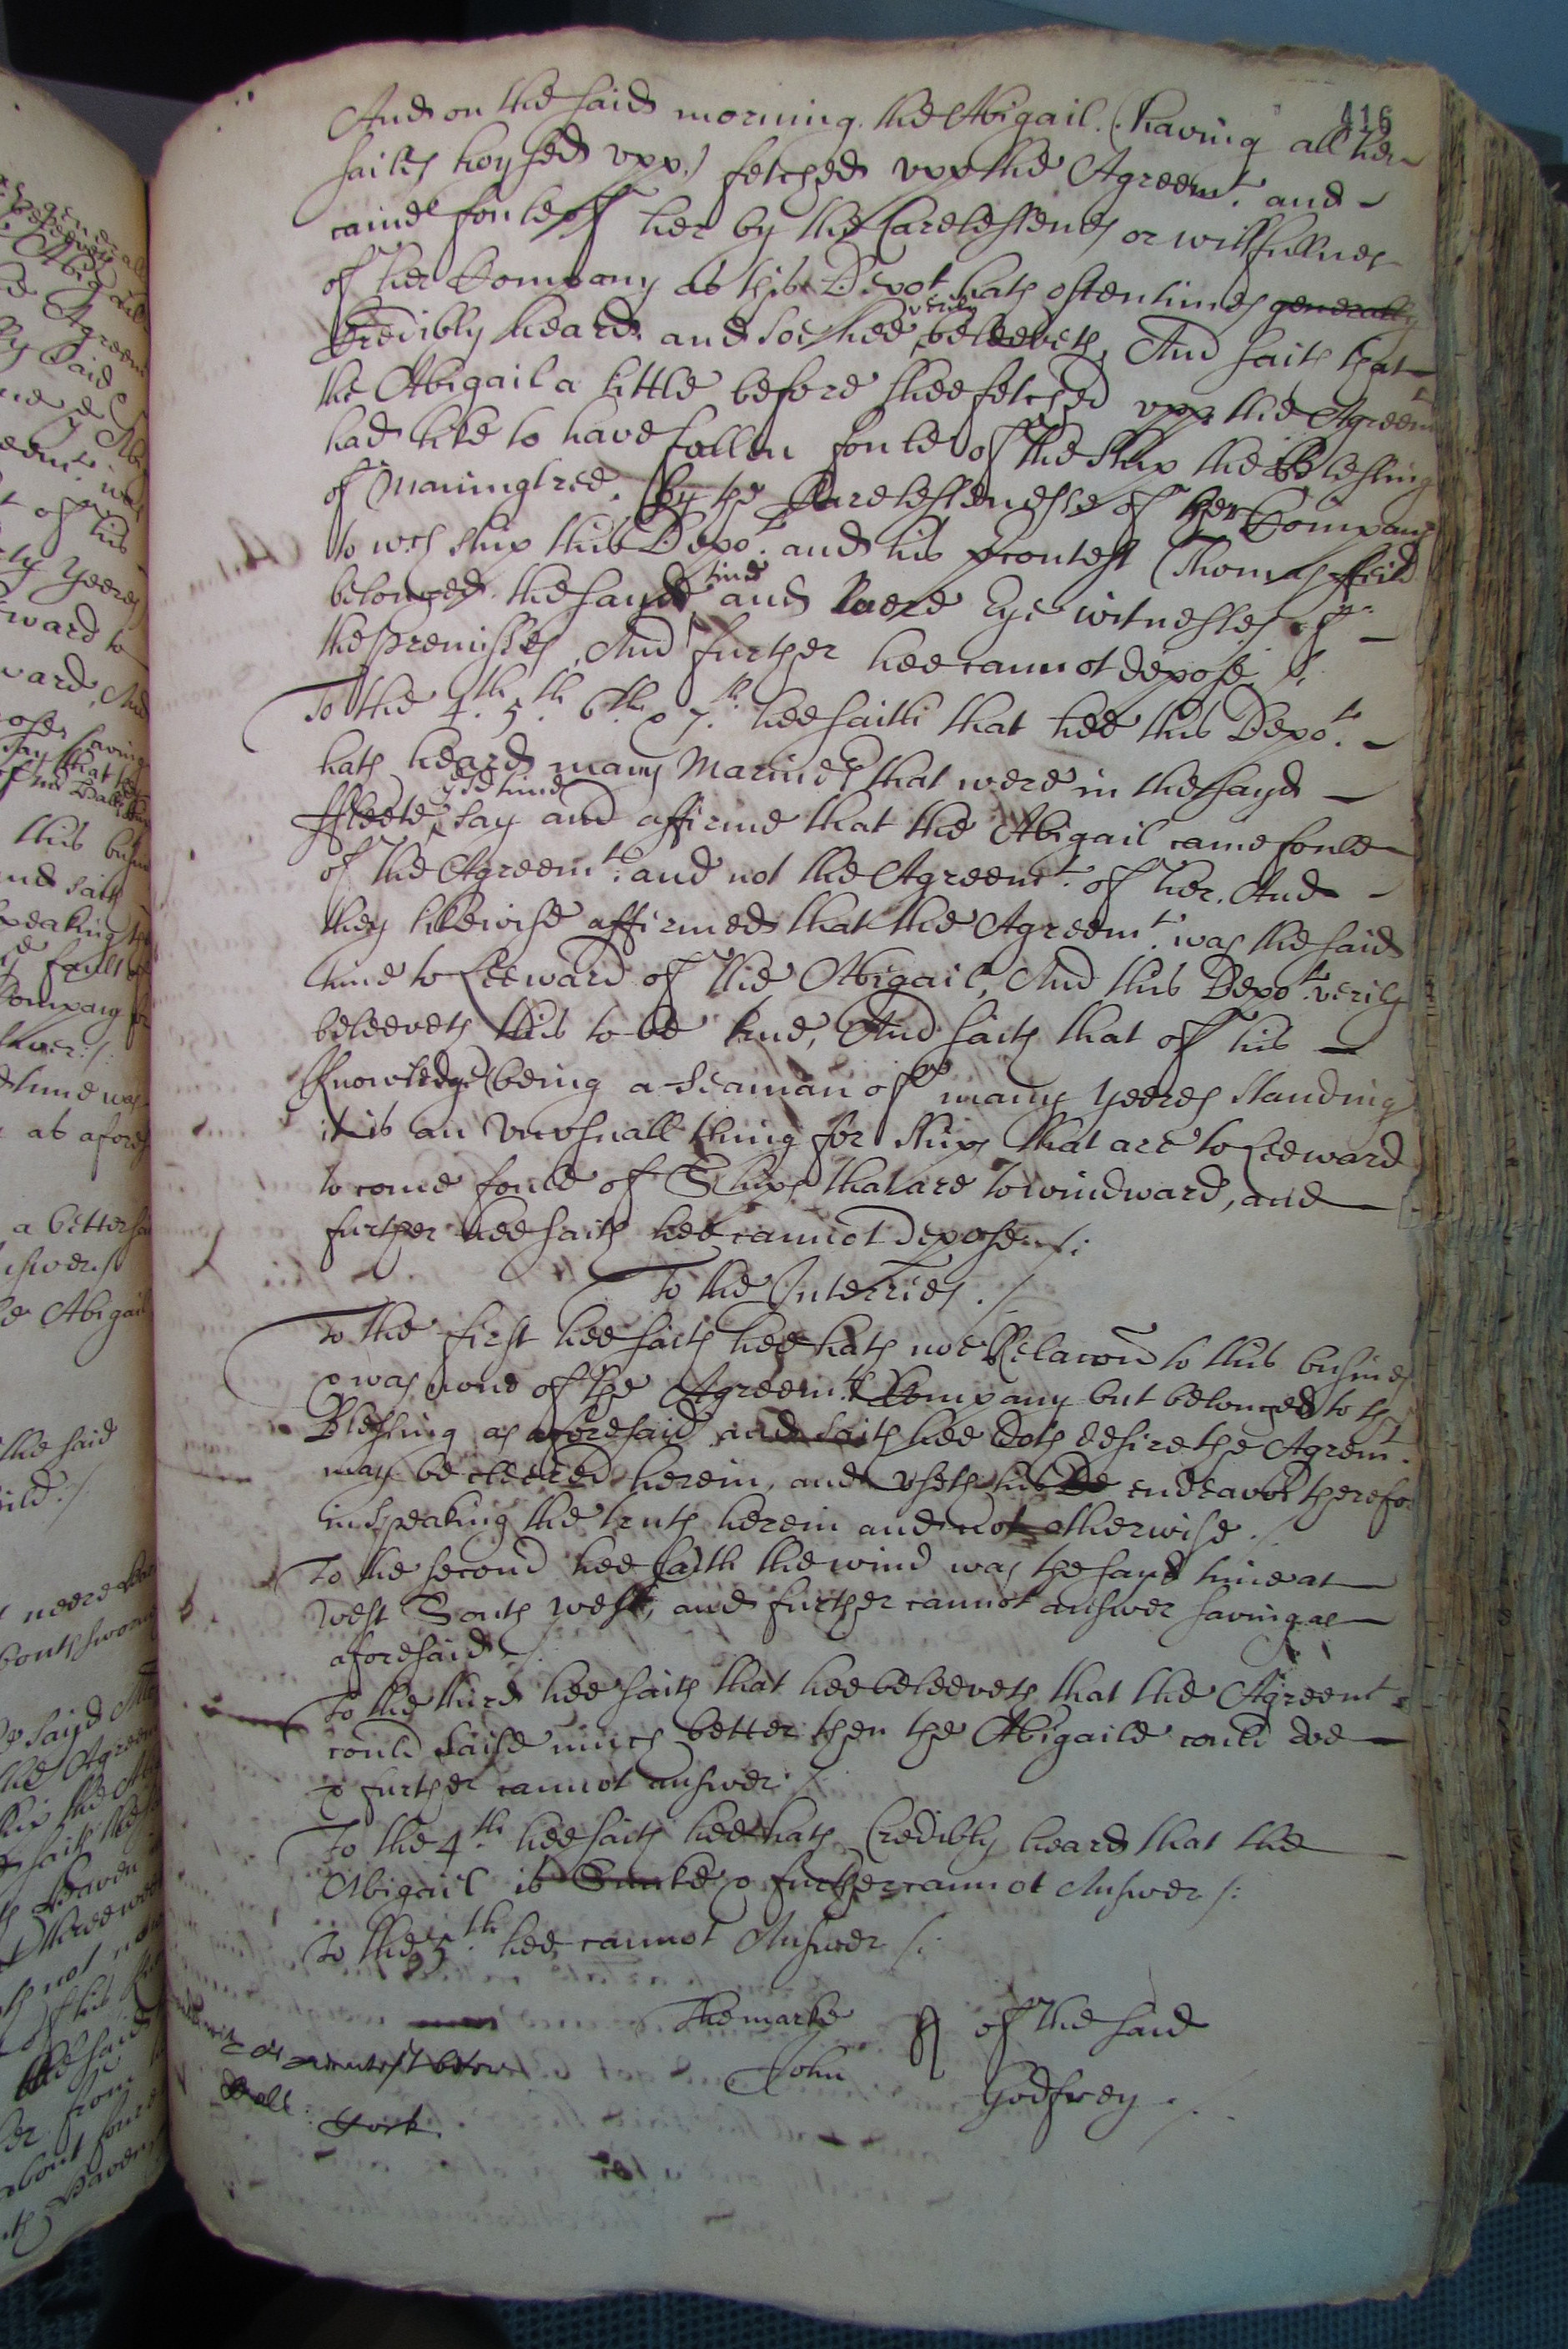 116
And on the said morning the Abigail (having all her
sailes hoysed vpp.) fetched vpp the Agreemt. and
came foule off her by the Carelessenes or willfullnes
of her Company as this Depot hath oftentimes generally
Credibly heard, and soe hee verily beleeveth, And saith that
the Abigail a little before shee fetched vpp the Agreemt
had like to have fallen foule of the ship the Blessing
of Maningtree, by the Carelessenesse of her Company
to wch ship this Depot. and his precontest Thomas ffeild
belonged the sayd time and were Eye witnesses of
the premisses, And further hee cannot depose /.
To the 4th. 5th. 6th. & 7th. hee saith that hee this Depot.
hath heard many Mariners that were in the sayd
ffleete ye sd time say and affirme that the Abigail came foule
of the Agreemt. and not the Agreemt. of her. And
they likewise affirmed that the Agreemt. was the said
time to Leeward of the Abigail, And this Depot. verily
beleeveth this to be true, And saith that of his
Knowledge (being a seaman of many yeeres standing
it is an vnvsuall thing for ships that are to Leeward
to come foule of Ships that are to windward, and
further hee saith hee cannot depose ./:
To the Interries. /
To the first hee saith hee hath noe Relacon to this busines
& was none of the Agreemts Company but belonged to the
Blessing as aforesaid and saith hee doth desire the Agreemt.
may be cleered herein, and vseth his De endeavor therefor
in speaking the truth herein and not otherwise. /
To the second hee saith the wind was the sayd time at
West South west, and further cannot answer saving as
aforesaid /.
To the third hee saith that hee beleeveth that the Agreemt.
could saile much better then the Abigaile could doe
& further cannot answer. /
To the 4th. hee saith hee hath Credibly heard that the
Abigail is Suncke & further cannot Answer /:
To the 5th. hee cannot Answer /:
The marke of the said
John Godfrey ./.